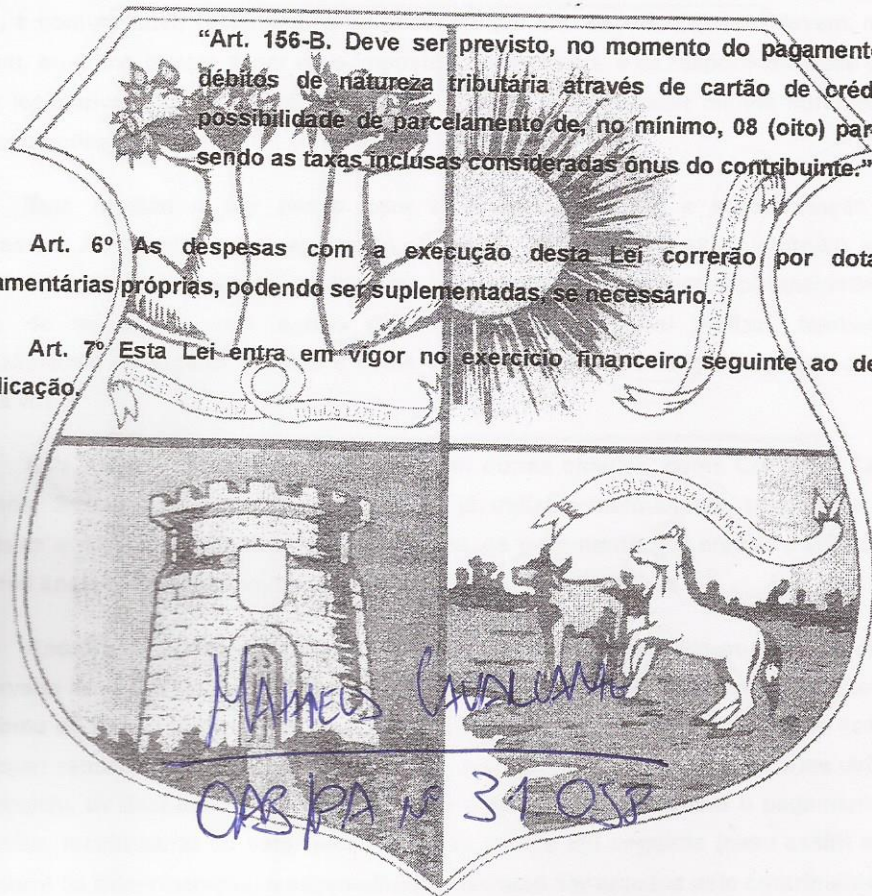 “Art. 156-B. Deve ser previsto, no momento do pagament
débitos de natureza tributária através de cartão de créd
possibilidade de parcelamento de, no mínimo, 08 (oito) par
sendo as taxas inclusas consideradas ônus do contribuinte.”
Art. 6º As despesas com a execução desta Lei correrão por dota
amentárias próprias, podendo ser suplementadas, se necessário.
Art. 7º Esta Lei entra em vigor no exercício financeiro seguinte ao de
licação.
NEQUAQUAM MINIMA EST
MATHEUS CAVALCANTE
OAB/PA Nº 31